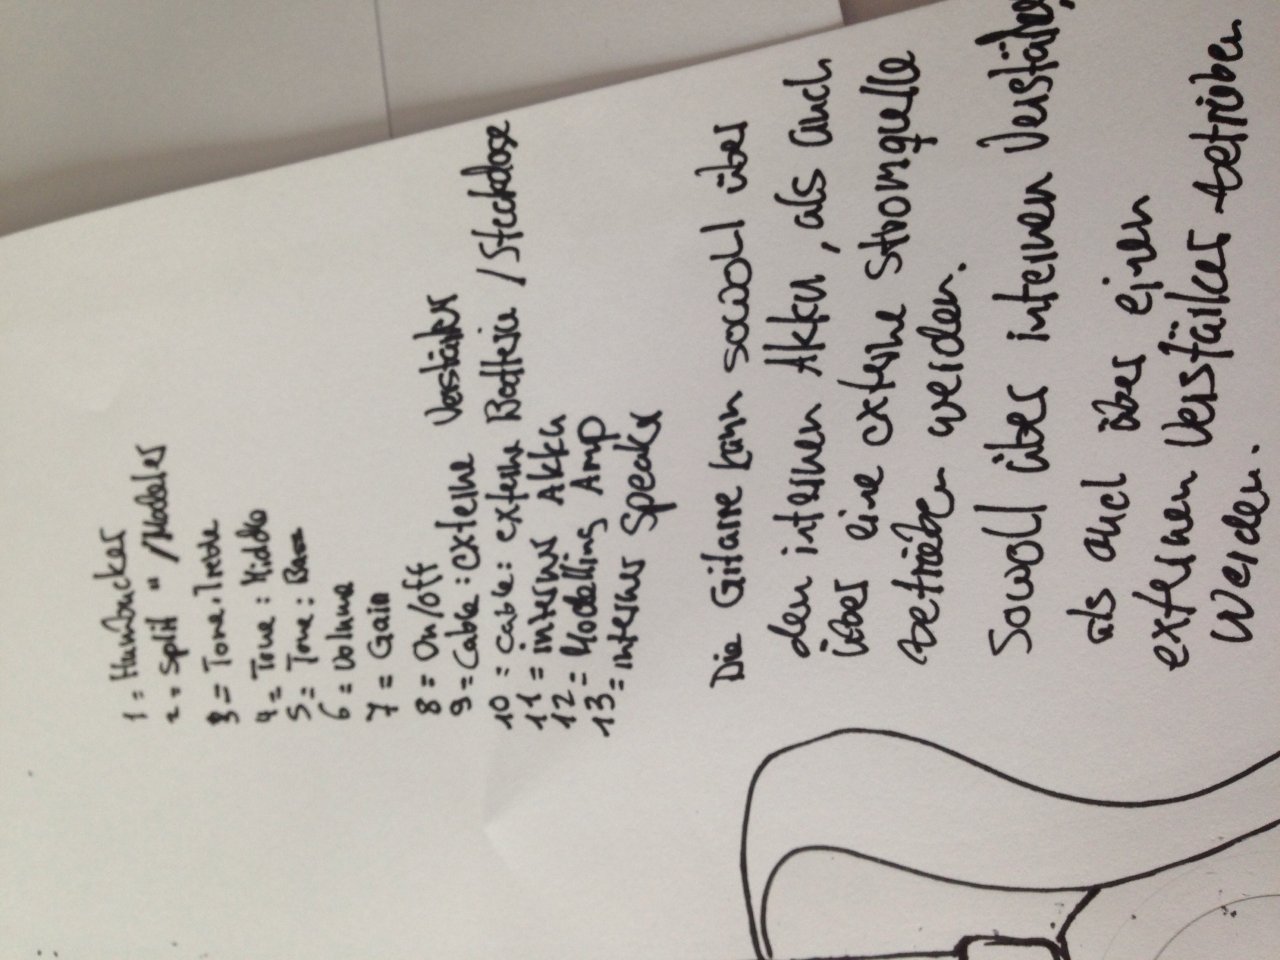 1 = Humbucker
2 = Split " /Modeler
3 = Tone: Treble
4 = Tone: Middle
5 = Tone: Bass
6 = Volume
7 = Gain
8 = On/off
9 = Cable: externe Verstärker
10 = Cable: externe Batterie / Steckdose
11 = interner Akku
12 = Modelling Amp
13 = interner Speaker
Die Gitarre kann sowohl über
den internen Akku, als auch
über eine externe Stromquelle
betrieben werden.
Sowohl über internen Verstärker,
als auch über einen
externen Verstärker betrieben
werden.